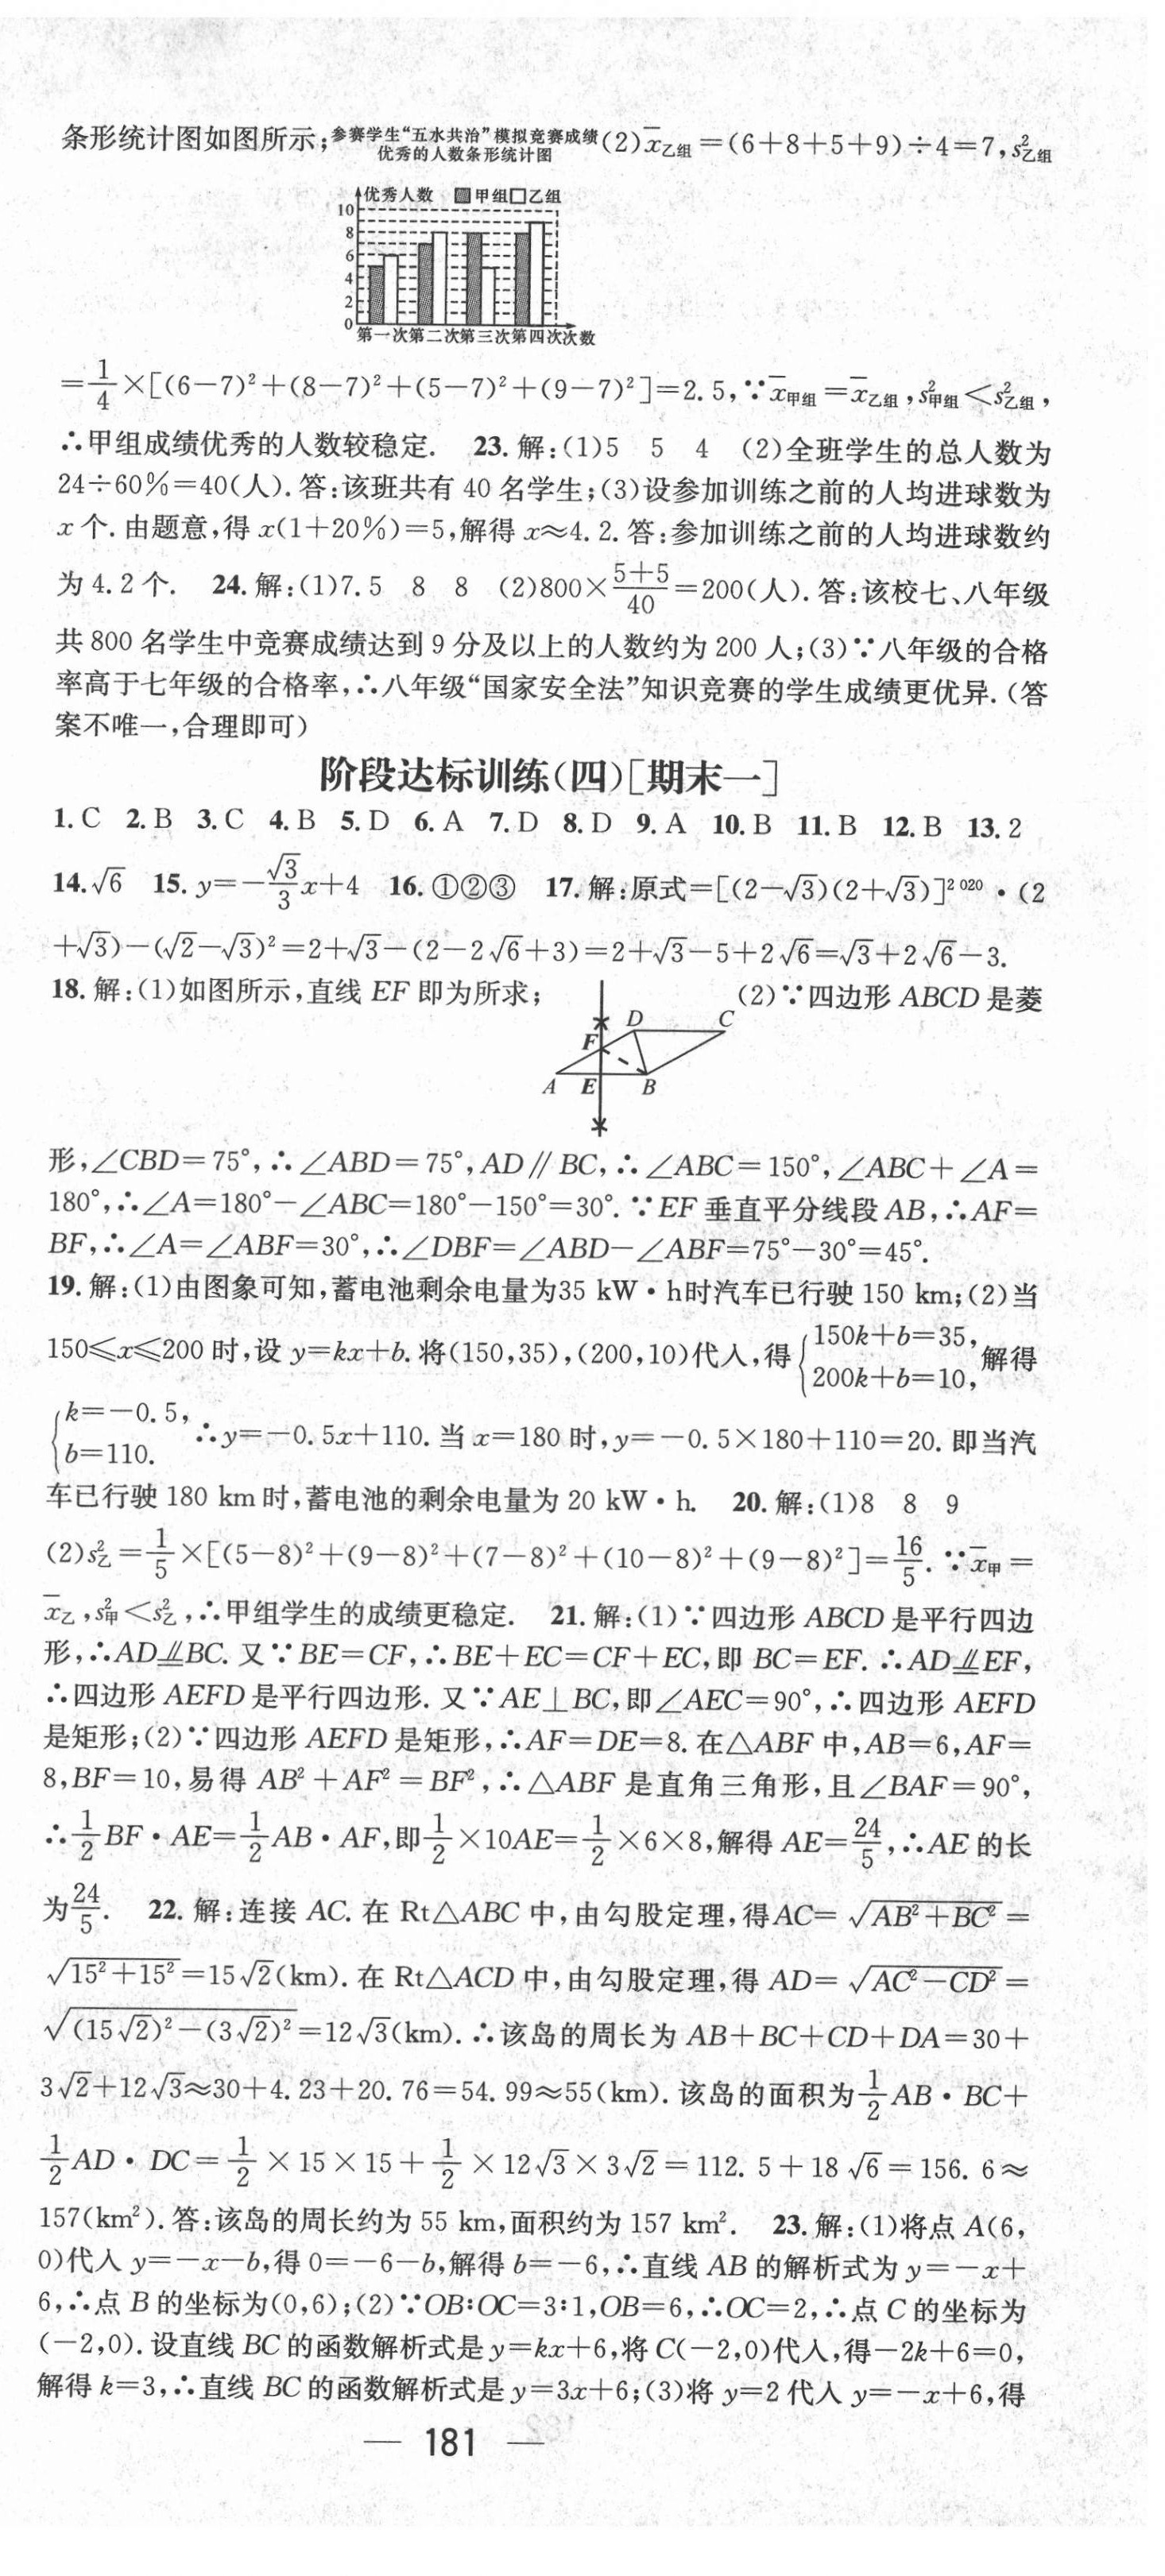 条形统计图如图所示;参赛学生“五水共治”模拟竞赛成绩(2)x̄乙组=(6+8+5+9)÷4=7,s²乙组
优秀的人数条形统计图
优秀人数 甲组 乙组
10
8
6
4
2
0
第一次第二次第三次第四次次数
=1/4×[(6−7)²+(8−7)²+(5−7)²+(9−7)²]=2.5,∵x̄甲组=x̄乙组,s²甲组<s²乙组,
∴甲组成绩优秀的人数较稳定. 23.解:(1)5 5 4 (2)全班学生的总人数为
24÷60%=40(人).答:该班共有 40 名学生;(3)设参加训练之前的人均进球数为
x 个.由题意,得 x(1+20%)=5,解得 x≈4.2.答:参加训练之前的人均进球数约
为 4.2 个. 24.解:(1)7.5 8 8 (2)800×(5+5)/40=200(人).答:该校七、八年级
共 800 名学生中竞赛成绩达到 9 分及以上的人数约为 200 人;(3)∵八年级的合格
率高于七年级的合格率,∴八年级“国家安全法”知识竞赛的学生成绩更优异.(答
案不唯一,合理即可)
阶段达标训练(四)[期末一]
1.C 2.B 3.C 4.B 5.D 6.A 7.D 8.D 9.A 10.B 11.B 12.B 13.2
14.√6 15.y=−√3/3x+4 16.①②③ 17.解:原式=[(2−√3)(2+√3)]²⁰²⁰·(2
+√3)−(√2−√3)²=2+√3−(2−2√6+3)=2+√3−5+2√6=√3+2√6−3.
18.解:(1)如图所示,直线 EF 即为所求; (2)∵四边形 ABCD 是菱
D C
F
A E B
形,∠CBD=75°,∴∠ABD=75°,AD∥BC,∴∠ABC=150°,∠ABC+∠A=
180°,∴∠A=180°−∠ABC=180°−150°=30°.∵EF 垂直平分线段 AB,∴AF=
BF,∴∠A=∠ABF=30°,∴∠DBF=∠ABD−∠ABF=75°−30°=45°.
19.解:(1)由图象可知,蓄电池剩余电量为35 kW·h时汽车已行驶 150 km;(2)当
150≤x≤200 时,设 y=kx+b.将(150,35),(200,10)代入,得{150k+b=35, 200k+b=10, 解得
{k=−0.5, b=110. ∴y=−0.5x+110.当 x=180 时,y=−0.5×180+110=20.即当汽
车已行驶 180 km 时,蓄电池的剩余电量为 20 kW·h. 20.解:(1)8 8 9
(2)s²乙=1/5×[(5−8)²+(9−8)²+(7−8)²+(10−8)²+(9−8)²]=16/5.∵x̄甲=
x̄乙,s²甲<s²乙,∴甲组学生的成绩更稳定. 21.解:(1)∵四边形 ABCD 是平行四边
形,∴AD⫽BC.又∵BE=CF,∴BE+EC=CF+EC,即 BC=EF.∴AD⫽EF,
∴四边形 AEFD 是平行四边形.又∵AE⊥BC,即∠AEC=90°,∴四边形 AEFD
是矩形;(2)∵四边形 AEFD 是矩形,∴AF=DE=8.在△ABF 中,AB=6,AF=
8,BF=10,易得 AB²+AF²=BF²,∴△ABF 是直角三角形,且∠BAF=90°,
∴1/2BF·AE=1/2AB·AF,即1/2×10AE=1/2×6×8,解得 AE=24/5,∴AE 的长
为24/5. 22.解:连接 AC.在 Rt△ABC 中,由勾股定理,得AC=√(AB²+BC²)=
√(15²+15²)=15√2(km).在 Rt△ACD 中,由勾股定理,得 AD=√(AC²−CD²)=
√((15√2)²−(3√2)²)=12√3(km).∴该岛的周长为 AB+BC+CD+DA=30+
3√2+12√3≈30+4.23+20.76=54.99≈55(km).该岛的面积为1/2AB·BC+
1/2AD·DC=1/2×15×15+1/2×12√3×3√2=112.5+18√6=156.6≈
157(km²).答:该岛的周长约为 55 km,面积约为 157 km². 23.解:(1)将点 A(6,
0)代入 y=−x−b,得 0=−6−b,解得 b=−6,∴直线 AB 的解析式为 y=−x+
6,∴点 B 的坐标为(0,6);(2)∵OB∶OC=3∶1,OB=6,∴OC=2,∴点 C 的坐标为
(−2,0).设直线 BC 的函数解析式是 y=kx+6,将 C(−2,0)代入,得−2k+6=0,
解得 k=3,∴直线 BC 的函数解析式是 y=3x+6;(3)将 y=2 代入 y=−x+6,得
— 181 —